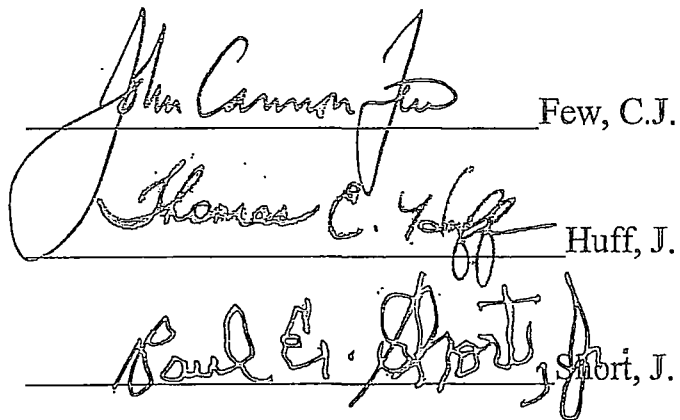 John Cannon Few Few, C.J.
Thomas C. Huff Huff, J.
Paul E. Short, Jr. Short, J.